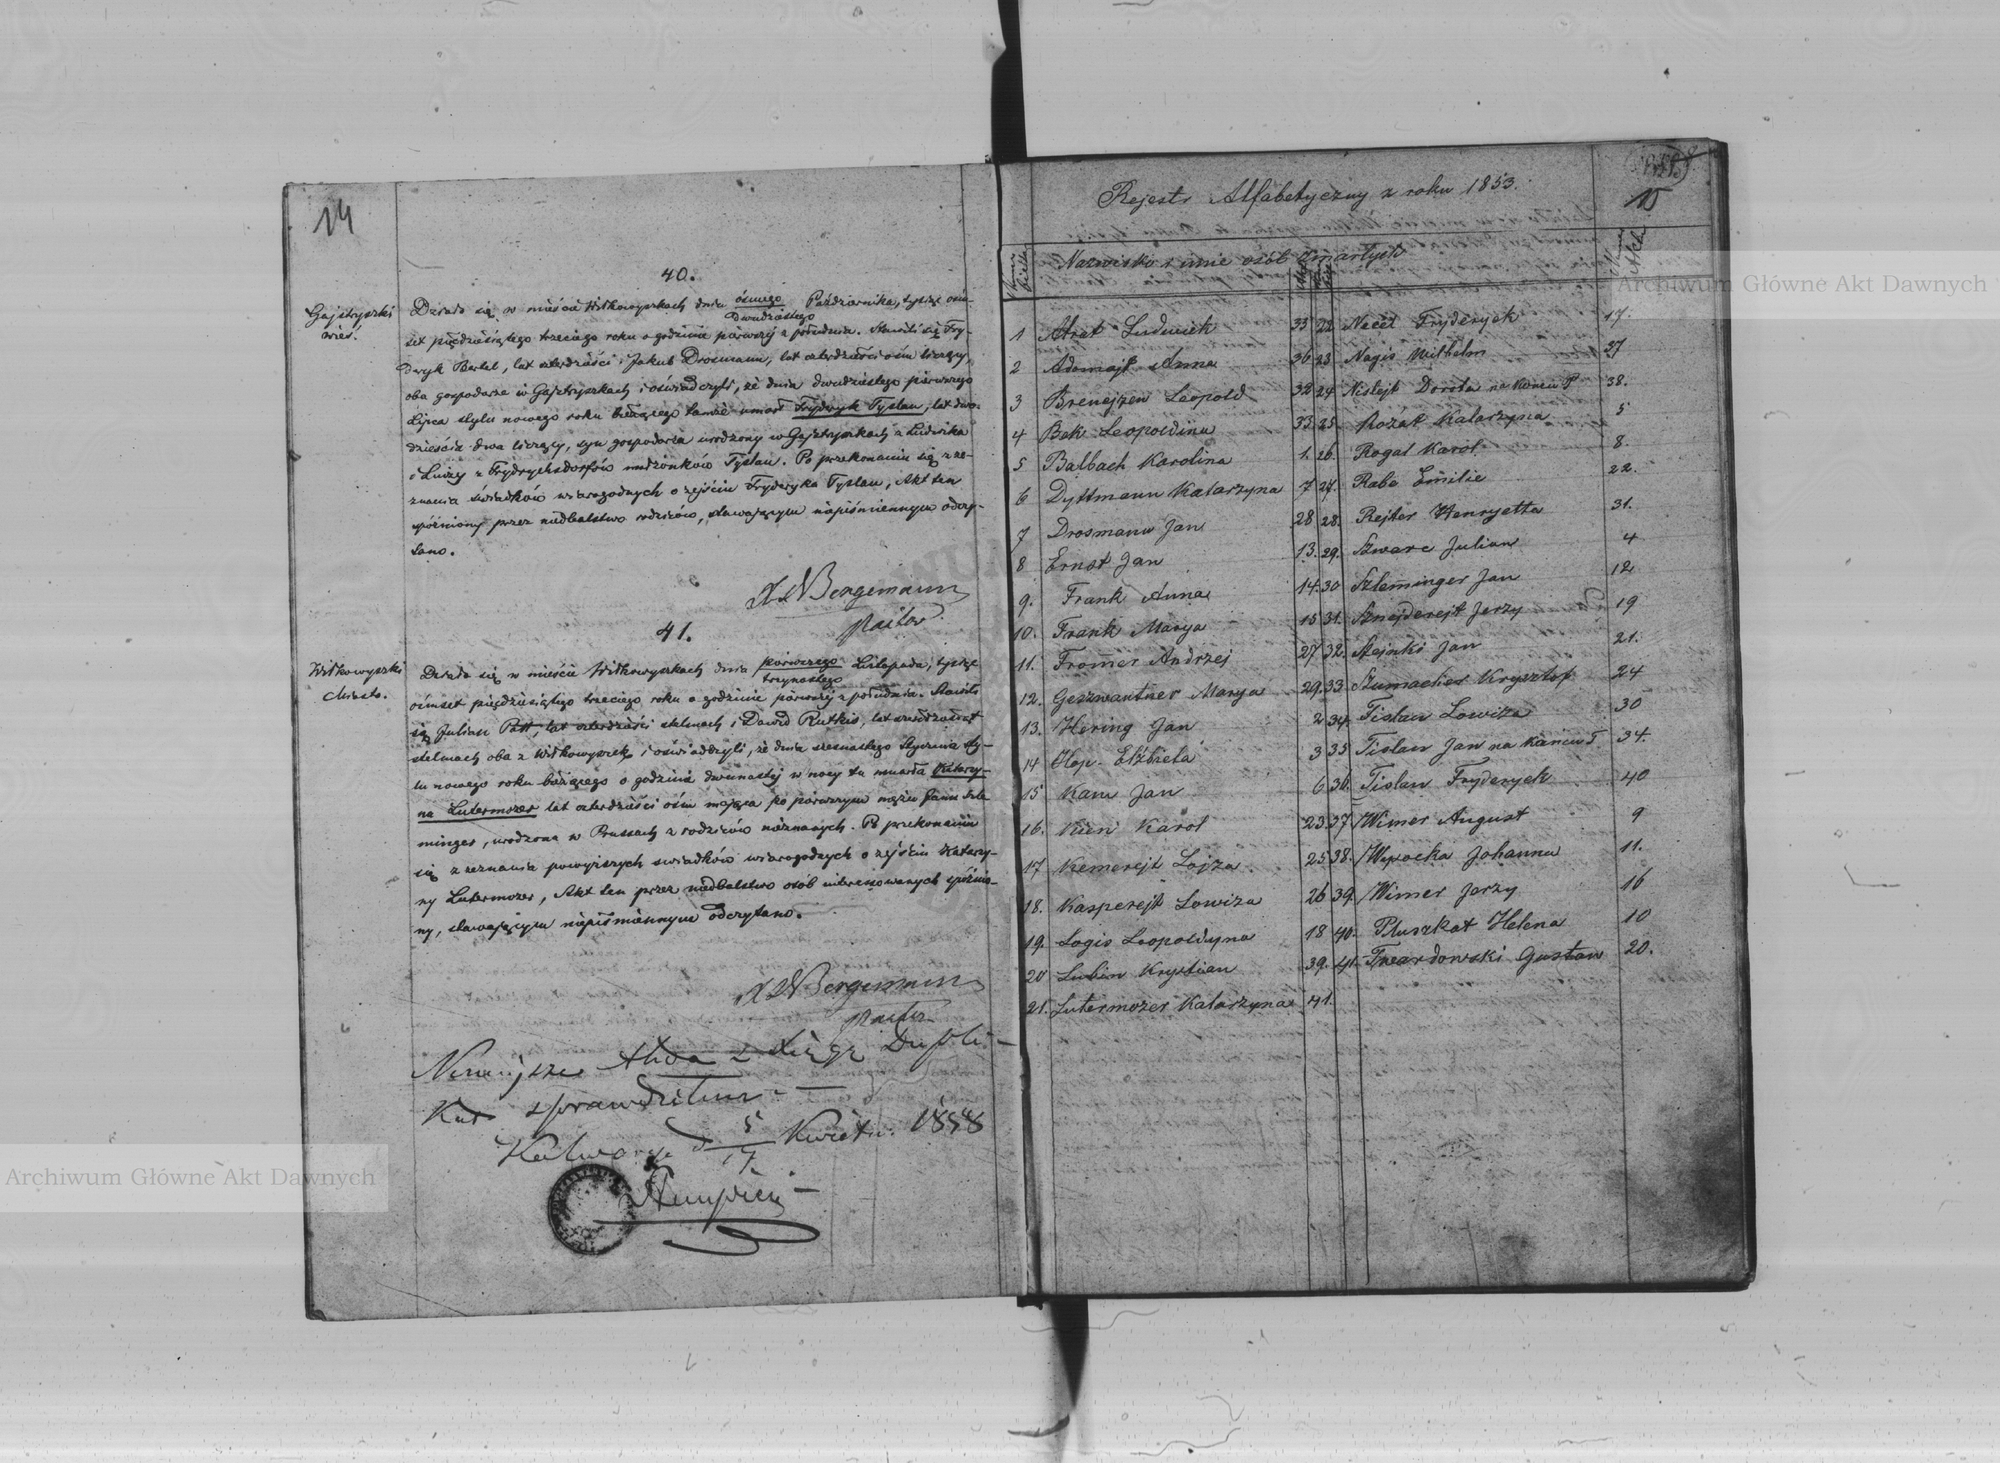 14
40.
Gajstryszki
wieś.
Działo się w mieście Wiłkowyszkach dnia ósmego Października, tysiąc ośm-
dwudziestego
set pięćdziesiątego trzeciego roku o godzinie pierwszej z południa. Stawili się Fry-
deryk Bertel, lat czterdzieści i Jakub Drosmann, lat czterdzieści ośm liczący,
oba gospodarze w Gajstryszkach i oświadczyli, że dnia dwudziestego pierwszego
Lipca stylu nowego roku bieżącego tamże umarł Fryderyk Tyslau, lat dwa-
dzieścia dwa liczący, syn gospodarza urodzony w Gajstryszkach z Ludwika
i Luizy z Frydrychsdorfów małżonków Tyslau. Po przekonaniu się z ze-
znania świadków wiarogodnych o zejściu Fryderyka Tyslau, Akt ten
spóźniony przez niedbalstwo rodziców, stawającym niepiśmiennym odczy-
tano.
XLWBergemann
Pastor
41.
Wiłkowyszki
Miasto.
Działo się w mieście Wiłkowyszkach dnia pierwszego Listopada, tysiąc
trzynastego
ośmset pięćdziesiątego trzeciego roku o godzinie pierwszej z południa. Stawili
się Julian Patt, lat czterdzieści stelmach i Dawid Rutkis, lat
stelmach oba z Wiłkowyszek i oświadczyli, że dnia szesnastego Stycznia sty-
lu nowego roku bieżącego o godzinie dwunastej w nocy tu umarła Katarzy-
na Lutermozer lat czterdzieści ośm mająca po pierwszym mężu Janie Szle
minger, urodzona w Prussach z rodziców nieznanych. Po przekonaniu
się z zeznania powyższych świadków wiarogodnych o zejściu Katarzy-
ny Lutermozer, Akt ten przez niedbalstwo osób interesowanych spóźnio-
ny, stawającym niepiśmiennym odczytano.
XLWBergemann
Pastor
Niniejsze Akta z Księgą Dupli-
Katą sprawdziłem
Kalwarya d 5/17 Kwietn. 1858
15
Rejestr Alfabetyczny z roku 1853.
Numer
Nazwisko i imie osób Zmarłych
Numer
Aktu
1 Atrat Ludwick 35
2 Adomajt Anna 36
3 Brenejzen Leopold 32
4 Bek Leopoldina 33
5 Balbach Karolina 1.
6 Dyttmann Katarzyna 7
7 Drosmann Jan 28
8 Ernst Jan 13.
9. Frank Anna 14.
10. Frank Marya 15
11. Fromer Andrzej 27
12. Geszwantner Marya 29.
13. Hering Jan 2
14 Hop. Elżbieta 3
15 Kam Jan 6
16. Kien Karol 23
17 Kemerejt Lojza 25
18. Kasperejt Lowiza 26
19. Logis Leopoldyna 18
20 Lubin Krystian 39.
21. Lutermozer Katarzyna 41.
22. Necel Fryderyck 17.
23. Nagis Wilhelm 37
24 Nislejt Dorota na Końcu P 38.
25. Rozat Katarzyna 5
26. Rogal Karol 8.
27. Rabe Emilie 22.
28. Rejter Henryetta 31.
29. Szwarc Julian 4
30 Szleminger Jan 12
31. Sznejderejt Jerzy 19
32. Stejnki Jan 21.
33. Szumacher Krysztof 24
34. Tislau Lowiza 30
35 Tislau Jan na Końcu T. 34.
36. Tislau Fryderyck 40
37 Wimer August 9
38. Wysocka Johanna 11.
39. Wimer Jerzy 16
40. Pluszkat Helena 10
41. Twardowski Gustaw 20.
Archiwum Główne Akt Dawnych
Archiwum Główne Akt Dawnych